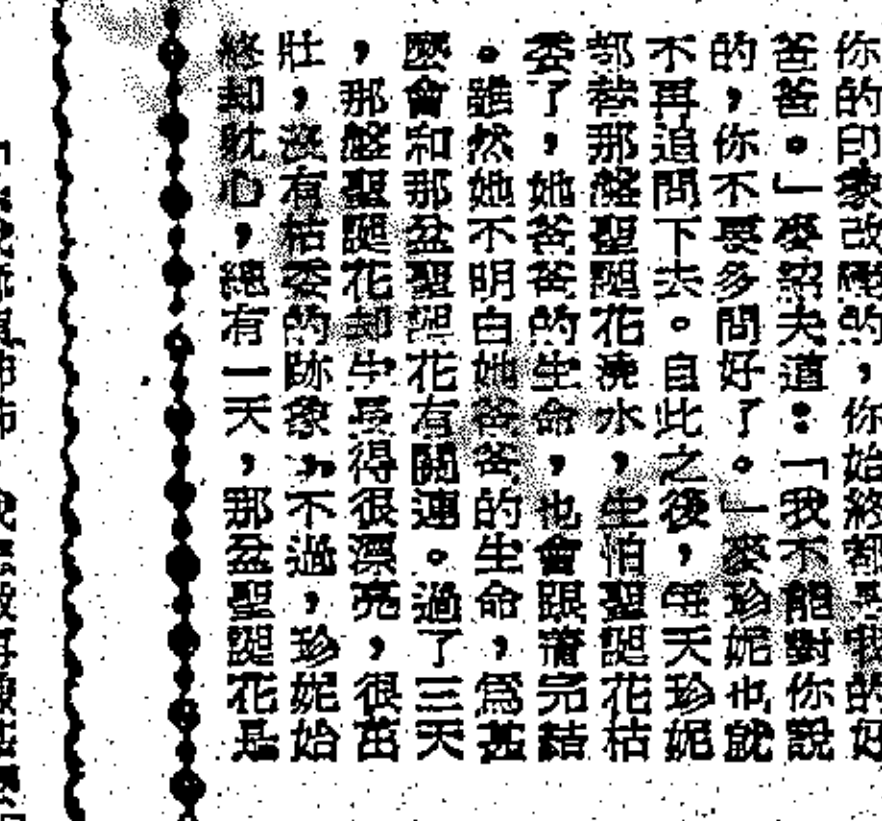 你的印象改的,你始終都是我的好
爸爸。」麥詔夫道:「我不能對你說
的,你不要多問好了。」麥珍妮也就
不再追問下去。自此之後,每天珍妮
都替那盤聖誕花澆水,生怕聖誕花枯
委了,她爸爸的生命,也會跟着完結
。雖然她不明白她爸爸的生命,爲甚
麼會和那盆聖誕花有關連。過了三天
,那盤聖誕花却生長得很漂亮,很茁
壯,沒有枯委的跡象,不過,珍妮始
終却躭心,總有一天,那盆聖誕花是